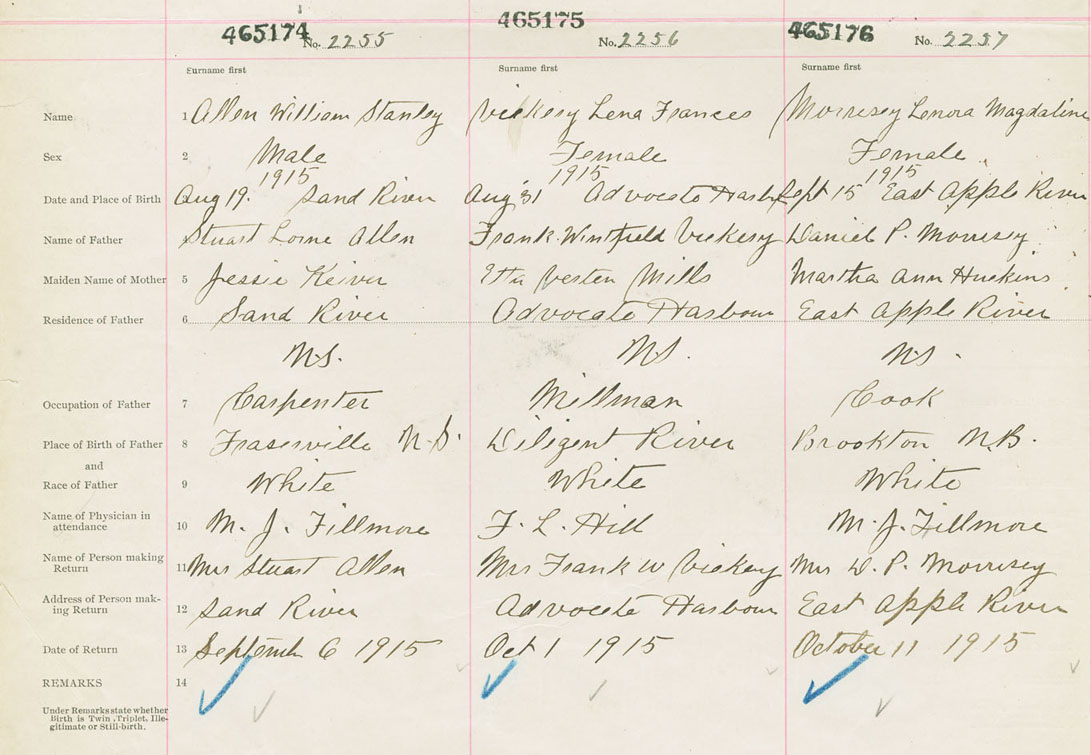 465174 No. 2255 465175 No. 2256 465176 No. 2257
Surname first Surname first Surname first
Name 1 Allen William Stanley Vickery Lena Frances Morrisey Lenora Magdaline
Sex 2 Male Female Female
1915 1915 1915
Date and Place of Birth Aug 19. Sand River Aug 31 Advocate Harb Sept 15 East Apple River
Name of Father Stuart Lorne Allen Frank Winfield Vickery Daniel P. Morrisey
Maiden Name of Mother 5 Jessie Keiver Etta Mills Martha Ann Huckins
Residence of Father 6 Sand River Advocate Harbour East Apple River
N.S. N.S. N.S.
Occupation of Father 7 Carpenter Millman Cook
Place of Birth of Father 8 Fraserville N.S. Diligent River Brookton N.B.
and
Race of Father 9 White White White
Name of Physician in
attendance 10 M. J. Fillmore F. L. Hill M. J. Fillmore
Name of Person making
Return 11 Mrs Stuart Allen Mrs Frank W Vickery Mrs D. P. Morrisey
Address of Person mak-
ing Return 12 Sand River Advocate Harbour East Apple River
Date of Return 13 September 6 1915 Oct 1 1915 October 11 1915
REMARKS 14
Under Remarks state whether
Birth is Twin, Triplet, Ille-
gitimate or Still-birth.